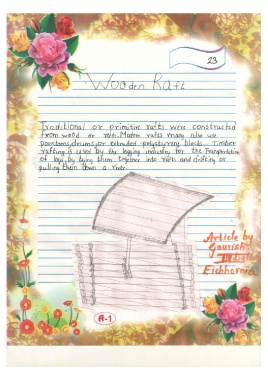 23
Wooden Raft
Traditional or primitive rafts were constructed
from wood or reeds. Modern rafts may also use
pontoons, drums, or extruded polystyrene blocks. Timber
rafting is used by the logging industry for the Transportation
of logs, by tying them together into rafts and drifting or
pulling them down a river.
Article by
Gourish
Eichhornia
A-1